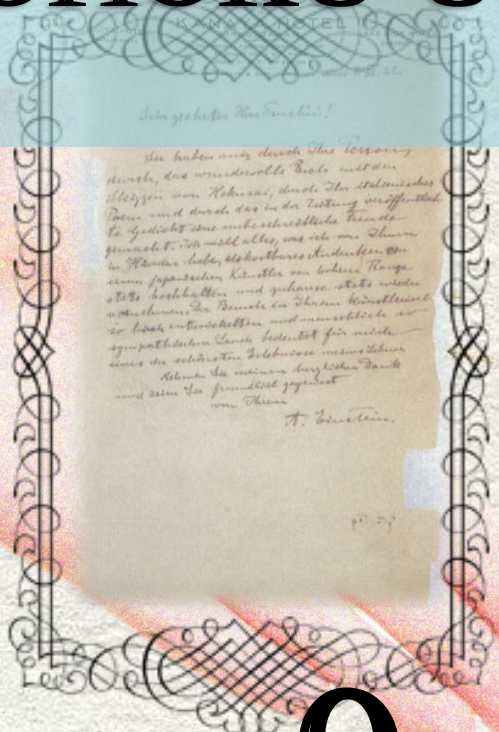 KANAYA HOTEL
Sehr geehrter Herr Tsuchii!
Sie haben mir durch Ihre Person,
durch das wundervolle Buch mit den
Skizzen von Hokusai, durch Ihr italienisches
Poem und durch das in der Zeitung veröffentlich-
te Gedicht eine unbeschreibliche Freude
gemacht. Ich will alles, was ich von Ihnen
in Händen habe, als kostbares Andenken an
einen japanischen Künstler von hohem Range
stets hochhalten und zuhause stets wieder
vornehmen. Der Besuch in Ihrem künstlerisch
so hoch entwickelten und menschlich so
sympathischen Lande bedeutet für mich
eines der schönsten Erlebnisse meines Lebens.
Nehmen Sie meinen herzlichen Dank
und seien Sie freundlich gegrüsst
von Ihrem
A. Einstein.